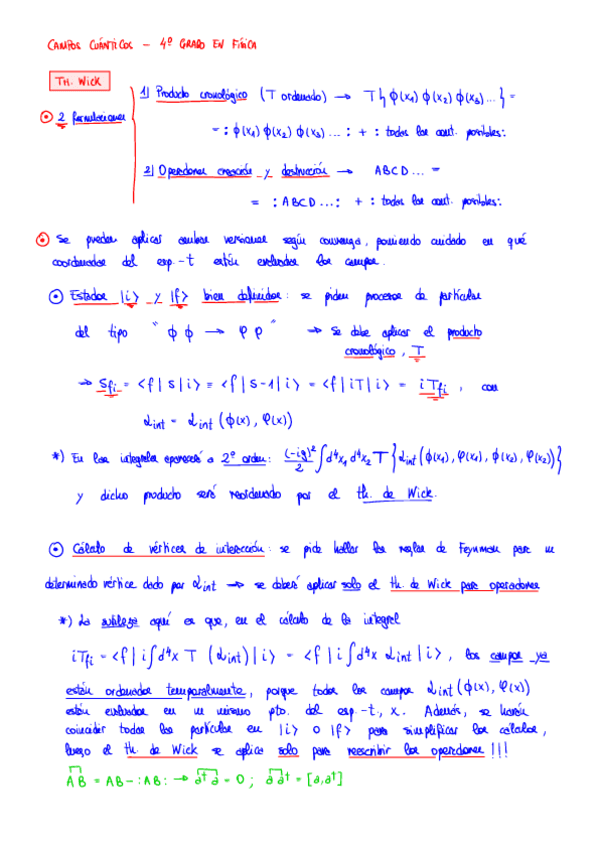 CAMPOS CUÁNTICOS – 4º GRADO EN FÍSICA
TH. WICK
⊙ 2 formulaciones
1) Producto cronológico (T ordenado) → T{ϕ(x₁) ϕ(x₂) ϕ(x₃)...} =
= :ϕ(x₁) ϕ(x₂) ϕ(x₃)...: + :todas las cont. posibles:
2) Operadores creación y destrucción → ABCD... =
= :ABCD...: + :todas las cont. posibles:
⊙ Se pueden aplicar ambas versiones según convenga, poniendo cuidado en qué
coordenadas del esp.-t están evaluados los campos.
⊙ Estados |i> y |f> bien definidos: se piden procesos de partículas
del tipo "ϕ ϕ → φ φ" → Se debe aplicar el producto
cronológico, T
→ S_fi = <f|S|i> = <f|S-1|i> = <f|iT|i> = iT_fi, con
ℒint = ℒint (ϕ(x), φ(x))
*) En las integrales aparecerá a 2º orden: (-ig)²/2 ∫d⁴x₁ d⁴x₂ T{ℒint(ϕ(x₁), φ(x₁), ϕ(x₂), φ(x₂))}
y dicho producto será reordenado por el th. de Wick.
⊙ Cálculo de vértices de interacción: se pide hallar las reglas de Feynman para un
determinado vértice dado por ℒint → se deberá aplicar solo el th. de Wick para operadores
*) La sutileza aquí es que, en el cálculo de la integral
iT_fi = <f|i∫d⁴x T (ℒint)|i> = <f|i∫d⁴x ℒint|i>, los campos ya
están ordenados temporalmente, porque todos los campos ℒint(ϕ(x), φ(x))
están evaluados en un mismo pto. del esp-t., x. Además, se harán
coincidir todas las partículas en |i> o |f> para simplificar los cálculos,
luego el th. de Wick se aplica solo para reescribir los operadores!!!
AB = AB-:AB: → a†a = 0; aa† = [a,a†]